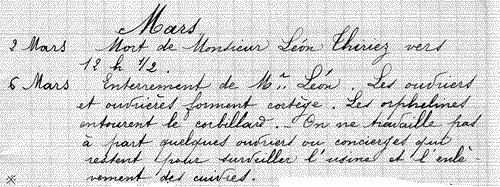 Mars
2 Mars Mort de Monsieur Léon Thiriez vers
12 h 1/2.
6 Mars Enterrement de Mr. Léon. Les ouvriers
et ouvrières forment cortège. Les orphelines
entourent le corbillard. _ On ne travaille pas
à part quelques ouvriers ou concierges qui
restent pour surveiller l'usine et l'enlè-
vement des cuivres.